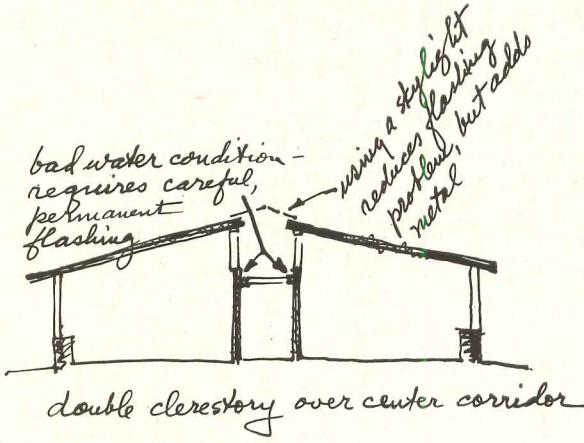 bad water condition -
requires careful,
permanent
flashing
using a skylight
reduces flashing
problem, but adds
metal
double clerestory over center corridor